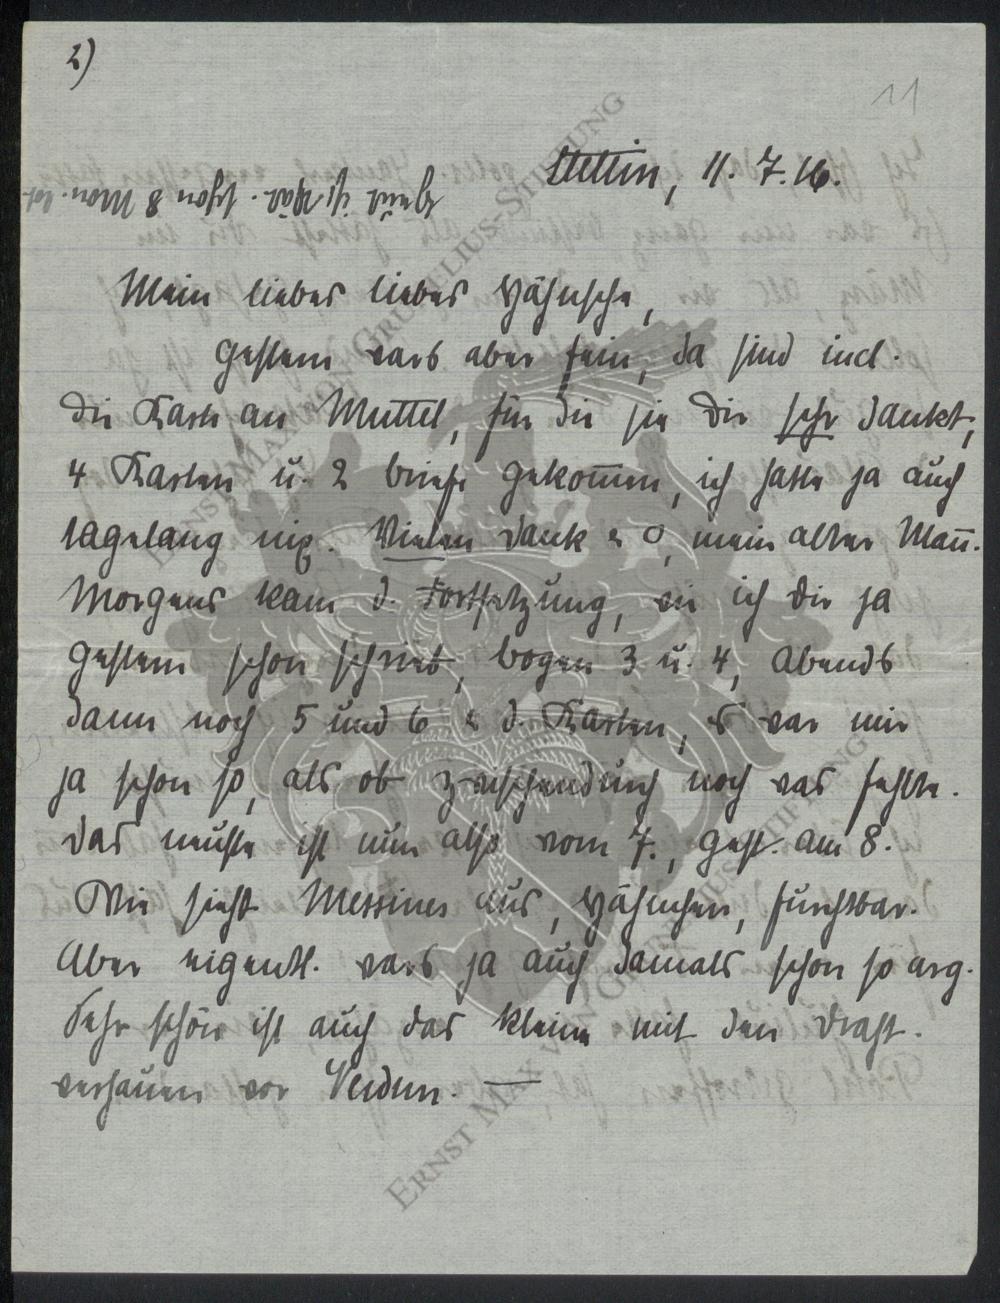 2)
11
Stettin, 11. 7. 16.
schon 8 Mon. tot
Mein liebes liebes Hähnsche,
gestern wars aber fein, da sind incl.
die Karte an Muttel, für die sie Dir sehr dankt,
4 Karten u. 2 Briefe gekom̅en, ich hatte ja auch
tagelang nix. Vielen Dank & O, mein alter Man̅.
Morgens kam d. Fortsetzung, wie ich Dir ja
gestern schon schrieb, Bogen 3 u. 4, Abends
dann noch 5 und 6 & d. Karten, es war mir
ja schon so, als ob zwischendurch noch was fehlte.
Das neuste ist nun also vom 7., gest. am 8.
Wie sieht Messines aus, Hähnchen, furchtbar.
Aber eigentl. wars ja auch damals schon so arg.
Sehr schön ist auch das kleine mit den Draht-
verhauen vor Verdun. —
ERNST MAX VON GRUNELIUS-STIFTUNG
ERNST MAX VON GRUNELIUS-STIFTUNG